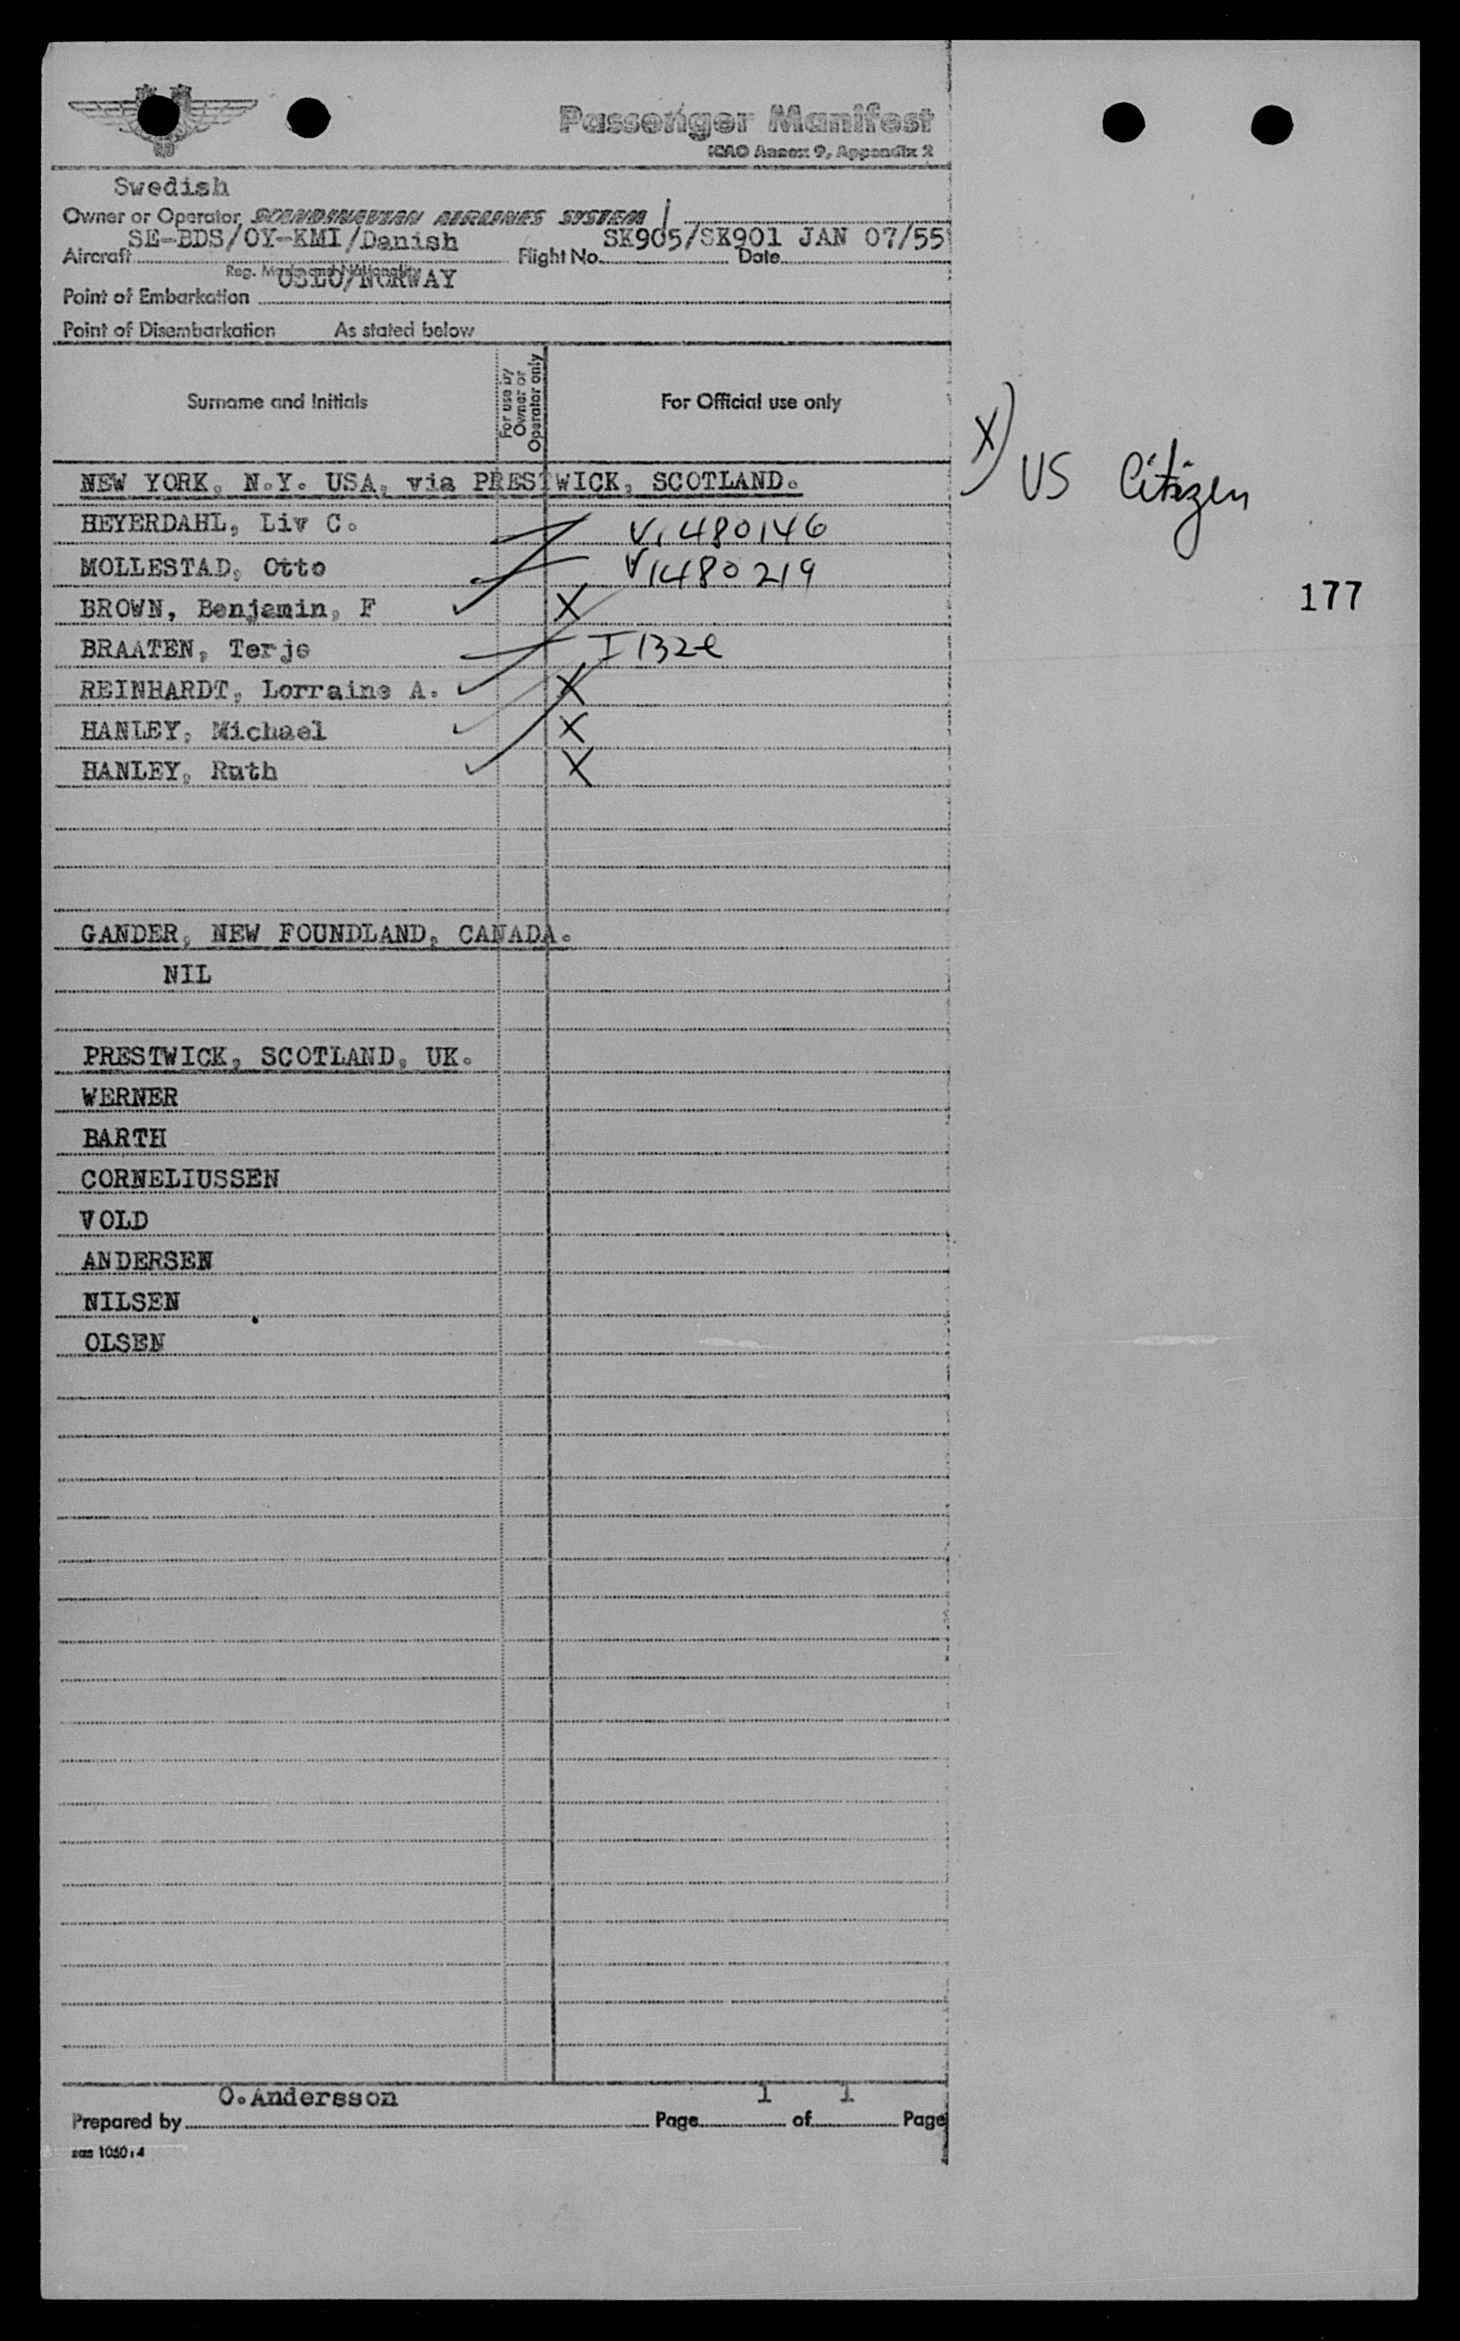 Passenger Manifest
ICAO Annex 9, Appendix 2
Swedish
Owner or Operator SCANDINAVIAN AIRLINES SYSTEM
SE-BDS/OY-KMI/Danish SK905/SK901 JAN 07/55
Aircraft Flight No. Date
Reg. Marks and Nationality
OSLO/NORWAY
Point of Embarkation
Point of Disembarkation As stated below
Surname and Initials
For use by Owner or Operator only
For Official use only
X) US Citizen
NEW YORK, N.Y. USA, via PRESTWICK, SCOTLAND.
HEYERDAHL, Liv C. V1480146
MOLLESTAD, Otto V1480219
BROWN, Benjamin, F X
177
BRAATEN, Terje I 132e
REINHARDT, Lorraine A. X
HANLEY, Michael X
HANLEY, Ruth X
GANDER, NEW FOUNDLAND, CANADA.
NIL
PRESTWICK, SCOTLAND, UK.
WERNER
BARTH
CORNELIUSSEN
VOLD
ANDERSEN
NILSEN
OLSEN
O.Andersson 1 1
Prepared by Page of Page
sas 1050:4